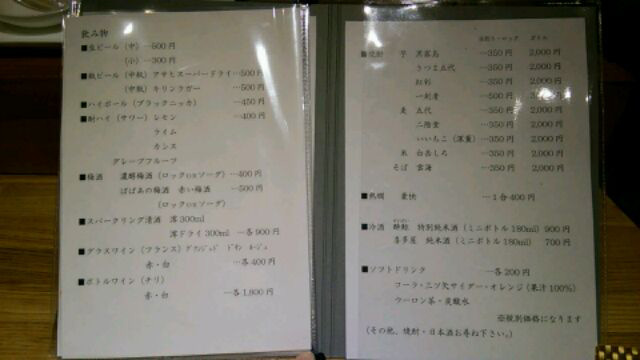 飲み物
■生ビール（中）―500円
（小）―300円
■瓶ビール（中瓶）アサヒスーパードライ…500円
（中瓶）キリンラガー …500円
■ハイボール（ブラックニッカ） ―450円
■酎ハイ（サワー）レモン ―400円
ライム
カシス
グレープフルーツ
■梅酒 濃醇梅酒（ロックorソーダ）―400円
ばばあの梅酒 赤い梅酒 ―500円
（ロックorソーダ）
■スパークリング清酒 澪300ml
澪ドライ300ml ―各900円
■グラスワイン（フランス）
赤・白 …各400円
■ボトルワイン（チリ）
赤・白 …各1,800円
水割り・ロック ボトル
■焼酎 芋 黒霧島 ―350円 2,000円
さつま五代 ―350円 2,000円
紅彩 ―350円 2,000円
一刻者 ―500円
麦 五代 ―350円 2,000円
二階堂 ―350円 2,000円
いいちこ（深薫）―350円 2,000円
米 白岳しろ ―350円 2,000円
そば 雲海 ―350円 2,000円
■熱燗 豪快 ―1合400円
■冷酒 酔鯨 特別純米酒（ミニボトル180ml）900円
喜多屋 純米酒（ミニボトル180ml） 700円
■ソフトドリンク ―各200円
コーラ・三ツ矢サイダー・オレンジ（果汁100%）
ウーロン茶・炭酸水
※税別価格になります
（その他、焼酎・日本酒お尋ね下さい。）